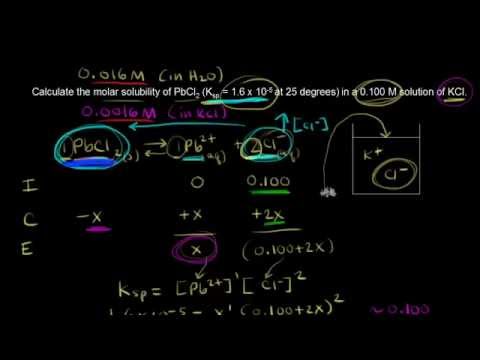 0.016M (in H₂O)
Calculate the molar solubility of PbCl₂ (Ksp = 1.6 x 10⁻⁵ at 25 degrees) in a 0.100 M solution of KCl.
0.0016M (in KCl)
[Cl⁻]
1 PbCl₂(s) ⇌ 1 Pb²⁺(aq) + 2 Cl⁻(aq)
K⁺
Cl⁻
I 0 0.100
C -x +x +2x
E x (0.100+2x)
Ksp = [Pb²⁺]¹ [Cl⁻]²
1.6x10⁻⁵ = x¹ (0.100+2x)² ~0.100